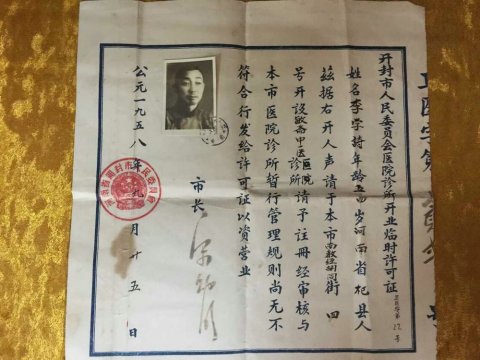 开封市人民委员会医院诊所开业临时许可证
第22号
姓名李学诗年龄五四岁河南省杞县人
兹据右开人声请于本市南教经胡同街四
号开设致斋中医诊所医院诊所请予注册经审核与
本市医院诊所暂行管理规则尚无不
符合行发给许可证以资营业
市长
公元一九五八年九月十五日
河南省开封市人民委员会